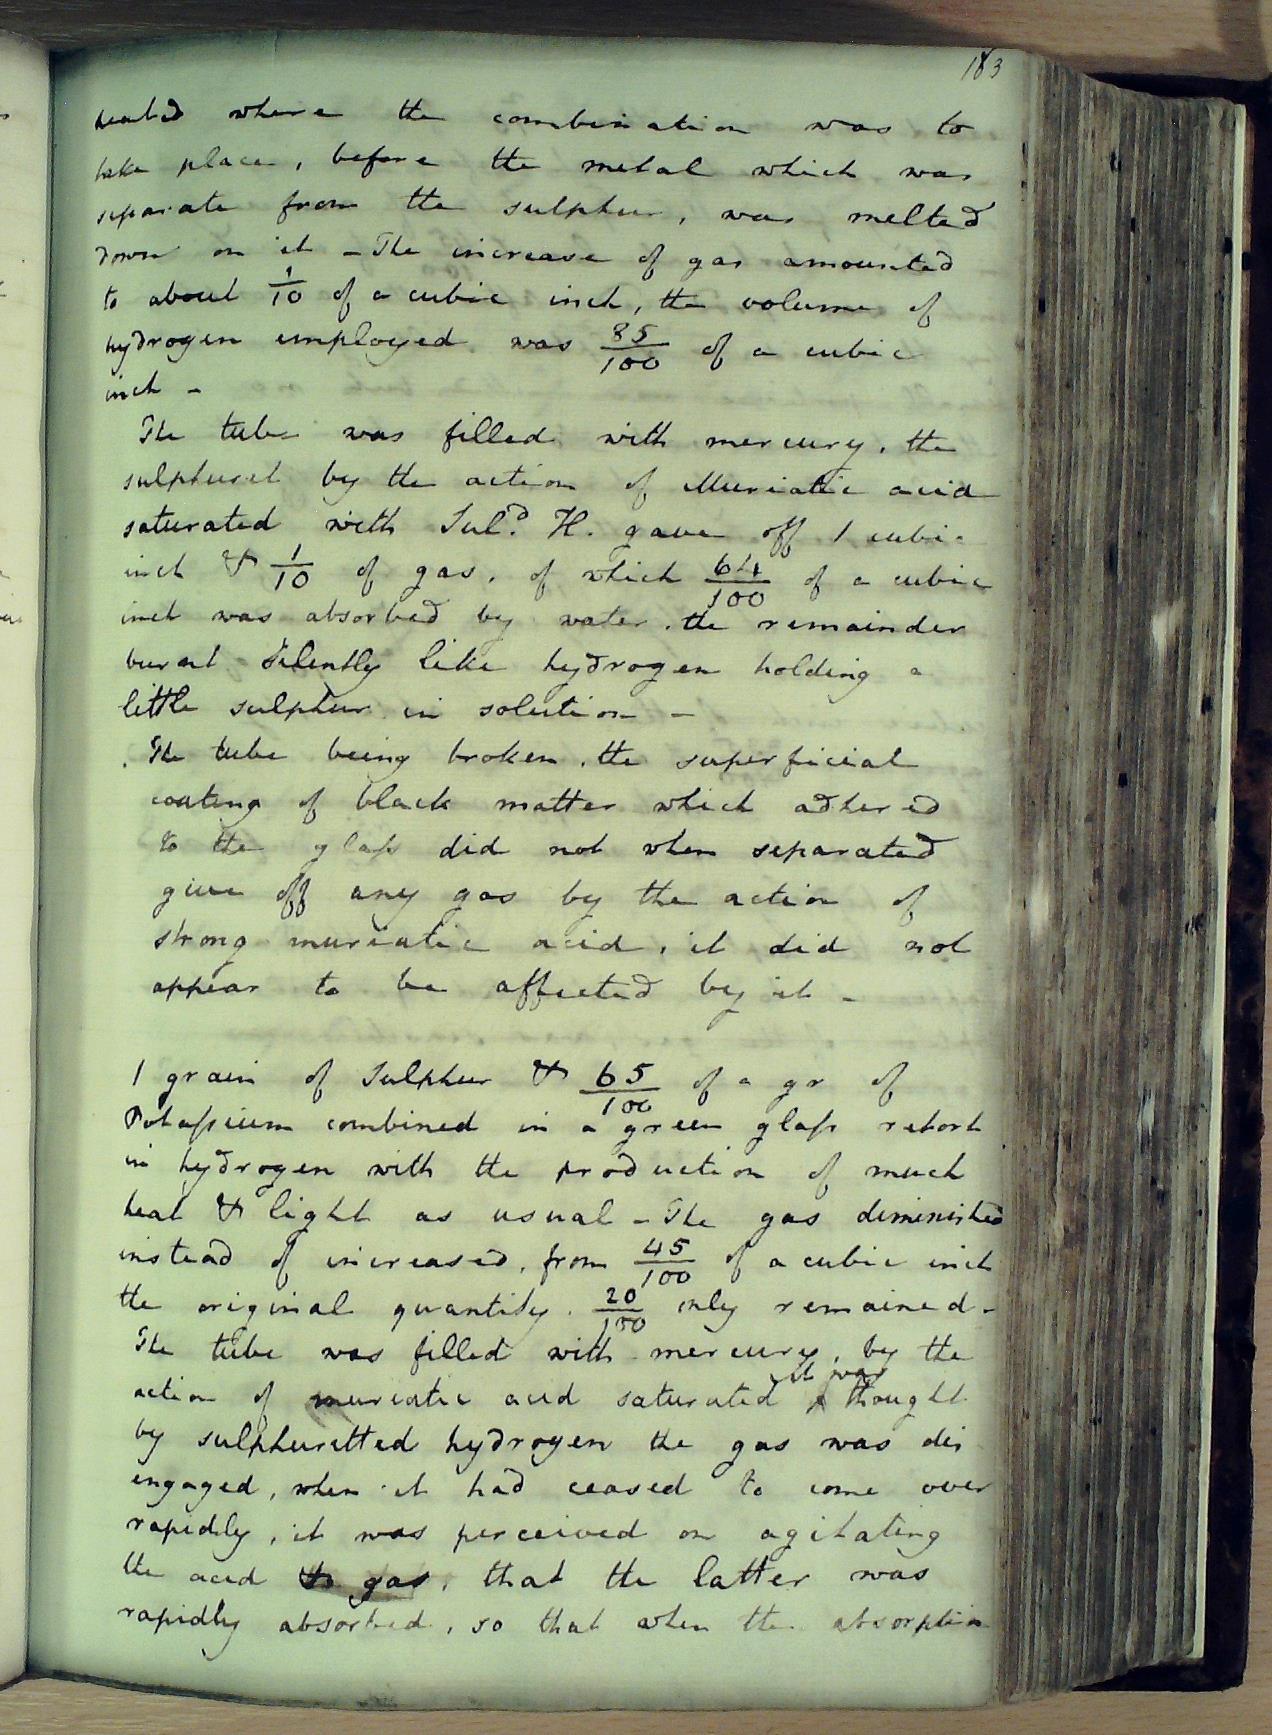 183
heated where the combination was to
take place, before the metal which was
separate from the sulphur, was melted
down on it - The increase of gas amounted
to about 1/10 of a cubic inch, the volume of
hydrogen employed was 85/100 of a cubic
inch -
The tube was filled with mercury, the
sulphuret by the action of Muriatic acid
saturated with Sul.d H. gave off 1 cubic
inch & 1/10 of gas, of which 64/100 of a cubic
inch was absorbed by water. the remainder
burnt silently like hydrogen holding a
little sulphur in solution -
The tube being broken, the superficial
coating of black matter which adhered
to the glass did not when separated
give off any gas by the action of
strong muriatic acid, it did not
appear to be affected by it -
1 grain of Sulphur & 65/100 of a gr of
Potassium combined in a green glass retort
in hydrogen with the production of much
heat & light as usual - The gas diminished
instead of increased, from 45/100 of a cubic inch
the original quantity. 20/100 only remained -
The tube was filled with mercury, by the
action of muriatic acid saturated it was thought
by sulphuretted hydrogen the gas was dis
engaged, when it had ceased to come over
rapidly, it was perceived on agitating
the acid & gas, that the latter was
rapidly absorbed, so that when the absorption